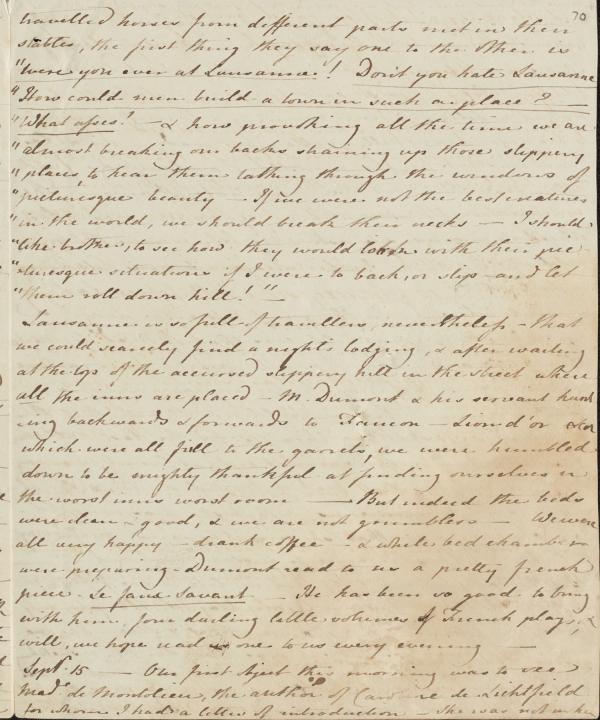 70
travelled horses from different parts met in their
stables, the first thing they say one to the other is
"Were you ever at Lausanne! Don't you hate Lausanne
"How could men build a town in such a place? —
"What asses! — & how provoking all the time we are
"almost breaking our backs straining up those slippery
"places, to hear them talking through the windows of
"picturesque beauty — If we were not the best creatures
"in the world, we should break their necks — I should
"like brother, to see how they would look with their pic
"turesque situations if I were to back, or slip — and let
"them roll down hill!" —
Lausanne is so full of travellers, nevertheless — that
we could scarcely find a night's lodging, & after waiting
at the top of the accursed slippery hill in the street where
all the inns are placed — M. Dumont & his servant hunt
ing backwards & forwards to Faucon — Lion d'or &
which were all full to the garrets, we were humbled
down to be mighty thankful at finding ourselves in
the worst inns worst room — But indeed the beds
were clean — good, & we are not grumblers — We were
all very happy — drank coffee — & while bed chambers
were preparing — Dumont read to us a pretty french
piece Le faux Savant — He has been so good to bring
with him four darling little volumes of French plays, &
will, we hope read one to us every evening —
Sept. 15 — Our first object this morning was to see
Mad. de Montolieu, the author of Caroline de Lichtfield
for whom I had a letter of introduction She was not